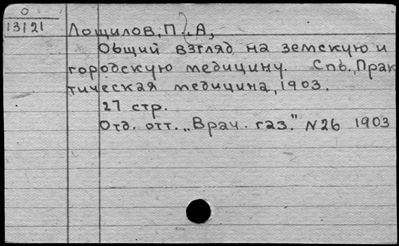 О
13/21
Лощилов, П. А,
Общий взгляд на земскую и
городскую медицину. Спб., Прак
тическая медицина, 1903.
27 стр.
Отд. отт. „Врач. газ." N26 1903